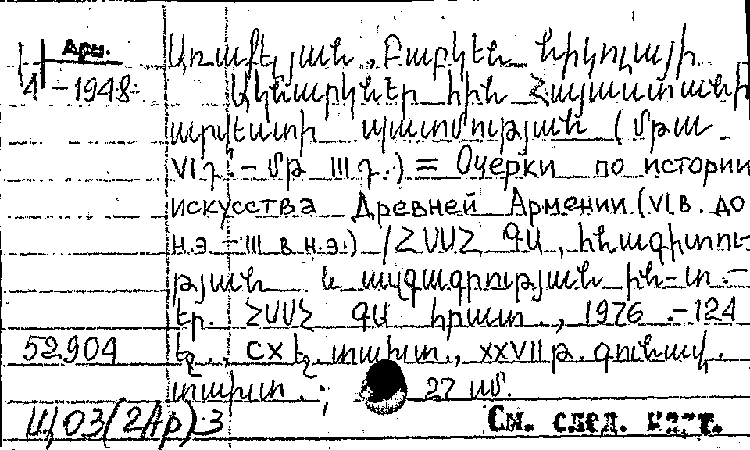 Арм.
4-1948
Առաքելյան, Բաբկեն Նիկոլայի
Ակնարկներ հին Հայաստանի
արվեստի պատմության (մթա
VI դ. – մթ III դ.) = Очерки по истории
искусства Древней Армении (VI в. до
н.э. – III в н.э.) / ՀՍՍՀ ԳԱ, հնագիտու-
թյան և ազգագրության ին-տ. –
Եր. ՀՍՍՀ ԳԱ հրատ., 1976. – 124
52.904 էջ. CX էջ. տախտ., XXVII թ. գունավ.
տախտ.; 27 սմ.
Щ03(2Ар).3 См. след. карт.